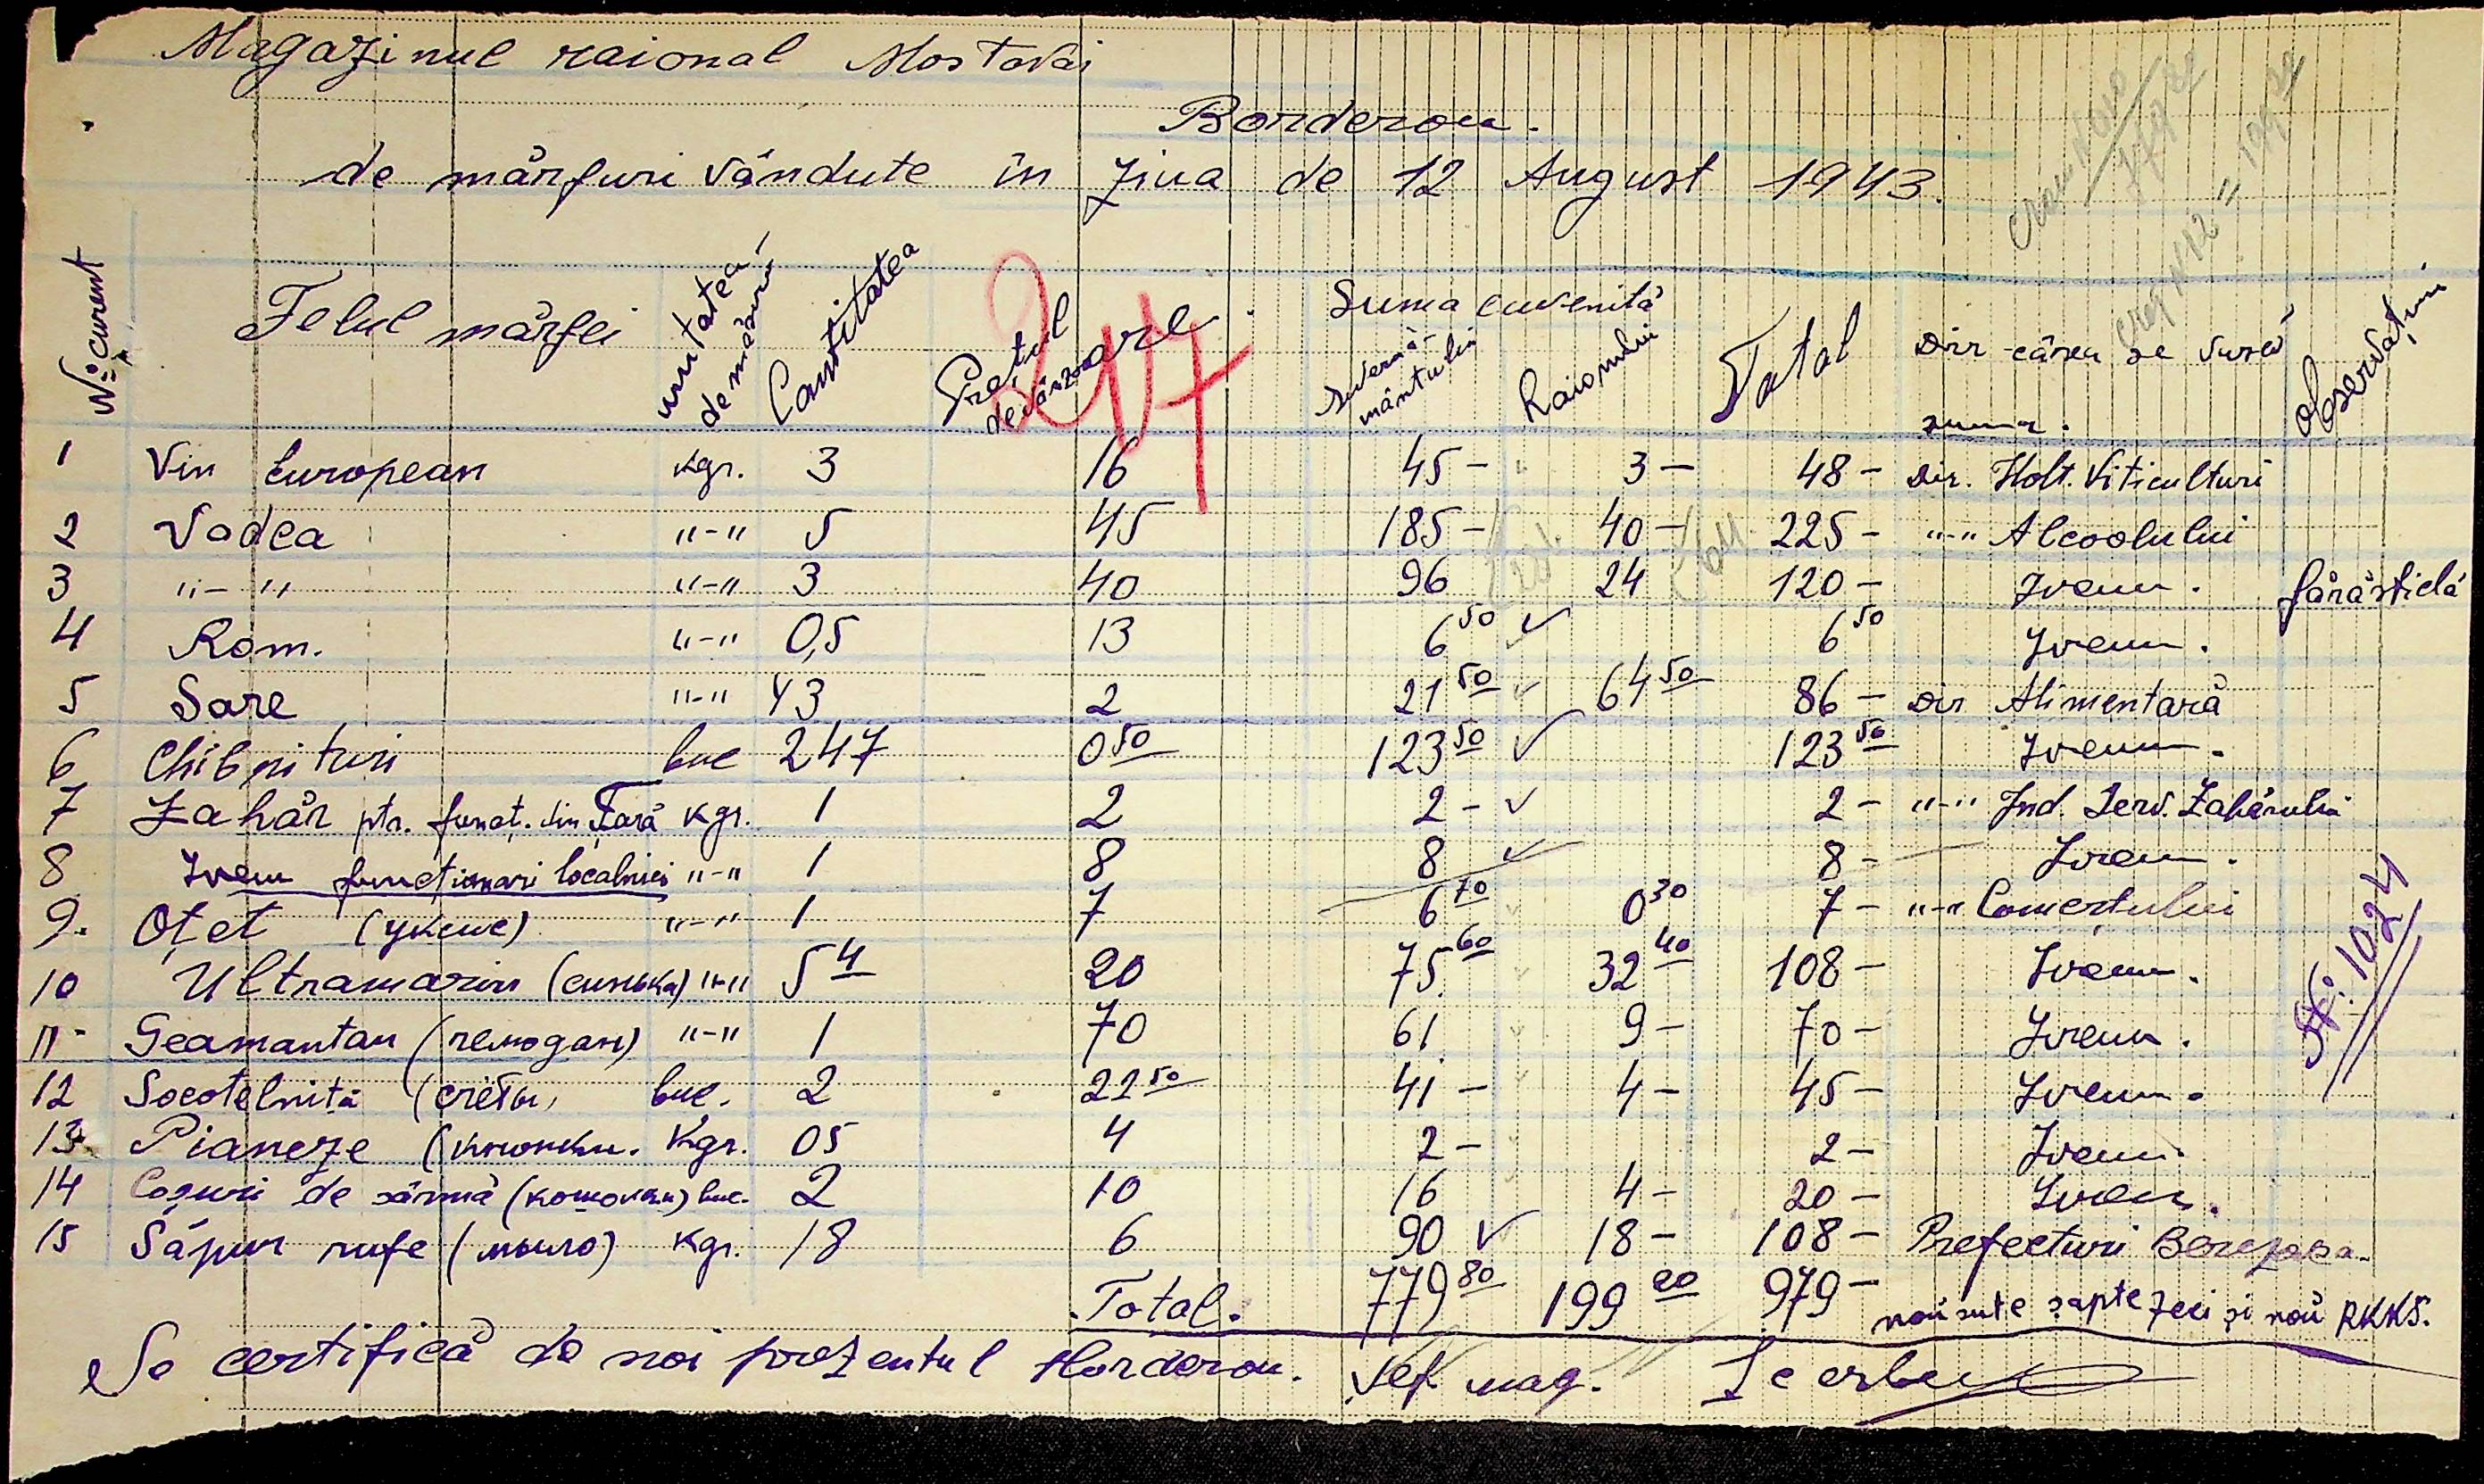 Magazinul raional Mostovoi
Borderou.
de mărfuri vândute în ziua de 12 August 1943.
№ curent Felul mărfei unitatea de măsură Cantitatea Prețul de vânzare Suma cuvenită Guvernă-mântului Raionului Total Dir căreia se varsă suma. observațiuni
217
1 Vin European kgr. 3 16 45 - 3 - 48 - Dir. Holt. Viticulturi
2 Vodca "-" 5 45 185 - 40 - 225 - "-" Alcoolului
3 "-" "-" 3 40 96 24 120 - Idem. fără sticlă
4 Rom. "-" 0,5 13 6 50 6 50 Idem.
5 Sare "-" 43 2 21 50 64 50 86 - Dir Alimentară
6 Chibrituri buc 247 0 50 123 50 123 50 Idem.
7 Zahăr ptr. funcț. din Țară kgr. 1 2 2 - 2 - "-" Ind. Serv. Zahărului
8 Idem funcționari localnici "-" 1 8 8 8 - Idem.
9. Oțet (уксус) "-" 1 7 6 70 0 30 7 - "-" Comerțului
10 Ultramarin (синька) "-" 5 4 20 75 60 32 40 108 - Idem.
11 - Geamantan (чемодан) "-" 1 70 61 9 - 70 - Idem.
12 Socotelnită (счёты) buc. 2 22 50 41 - 4 - 45 - Idem.
13 Pianeze (кнопки. Kgr. 05 4 2 - 2 - Idem.
14 Coșuri de sârmă (кошолки) buc. 2 10 16 4 - 20 - Idem.
15 Săpun rufe (мыло) kgr. 18 6 90 18 - 108 - Prefecturi Berezovca
Total. 779 80 199 20 979 - nouă sute șapte zeci și nouă RKKS.
№: 1024
Se certifică de noi prezentul Borderou. Șef mag.